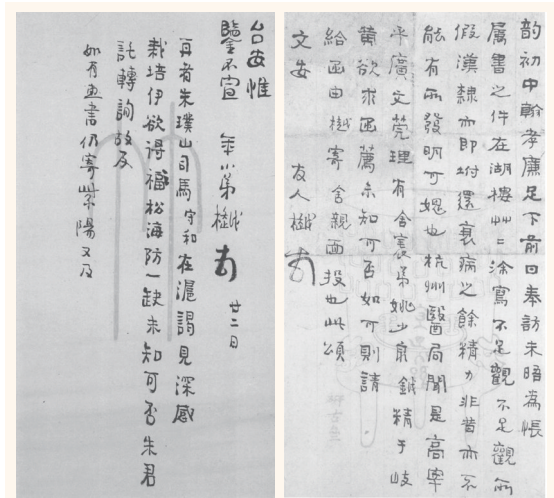 韵初中翰孝廉足下前日奉訪未晤為悵
属書之件在湖樓艸二涂寫不足觀不足觀所
假漢隸亦即坿還衰病之餘精力非昔亦不
能有所發明可媿也杭州醫局聞是高宰
平廣文筦理有舍表弟姚少泉精于岐
黄欲求函薦未知可否如可則請
給函由樾寄舍親面投也此頌
文安 友人樾
台安惟
鑒不宣 年小弟樾 廿二日
再者朱璞山司馬守和在滬謁見深感
栽培伊欲得福松海防一缺未知可否朱君
託轉詢故及
如有惠書仍寄紫陽又及